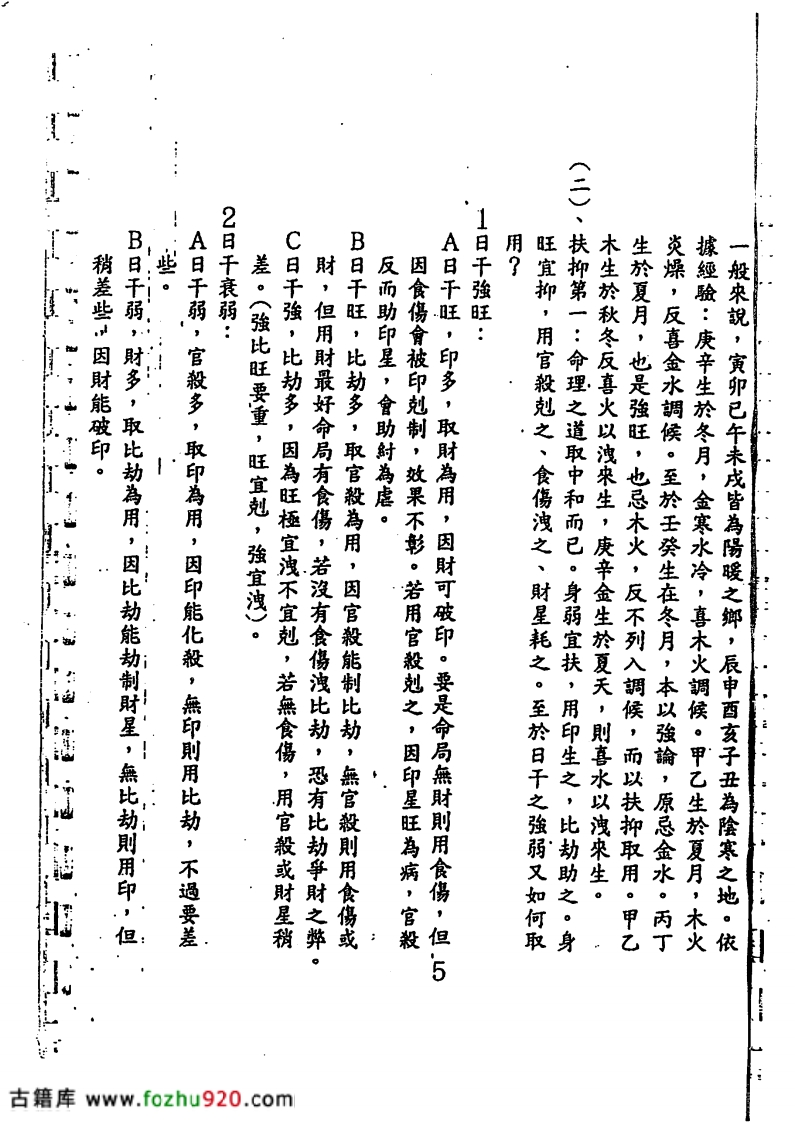 一般來說，寅卯巳午未戌皆為陽暖之鄉，辰申酉亥子丑為陰寒之地。依
據經驗：庚辛生於冬月，金寒水冷，喜木火調候。甲乙生於夏月，木火
炎燥，反喜金水調候。至於壬癸生在冬月，本以強論，原忌金水。丙丁
生於夏月，也是強旺，也忌木火，反不列入調候，而以扶抑取用。甲乙
木生於秋冬反喜火以洩來生，庚辛金生於夏天，則喜水以洩來生。
（二）、扶抑第一：命理之道取中和而已。身弱宜扶，用印生之，比劫助之。身
旺宜抑，用官殺剋之、食傷洩之、財星耗之。至於日干之強弱又如何取
用？
1日干強旺：
A日干旺，印多，取財為用，因財可破印。要是命局無財則用食傷，但
因食傷會被印剋制，效果不彰。若用官殺剋之，因印星旺為病，官殺
反而助印星，會助紂為虐。
B日干旺，比劫多，取官殺為用，因官殺能制比劫，無官殺則用食傷或
財，但用財最好命局有食傷，若沒有食傷洩比劫，恐有比劫爭財之弊。
C日干強，比劫多，因為旺極宜洩不宜剋，若無食傷，用官殺或財星稍
差。（強比旺要重，旺宜剋，強宜洩）。
2日干衰弱：
A日干弱，官殺多，取印為用，因印能化殺，無印則用比劫，不過要差
些。
B日干弱，財多，取比劫為用，因比劫能劫制財星，無比劫則用印，但
稍差些，因財能破印。
5
古籍库 www.fozhu920.com